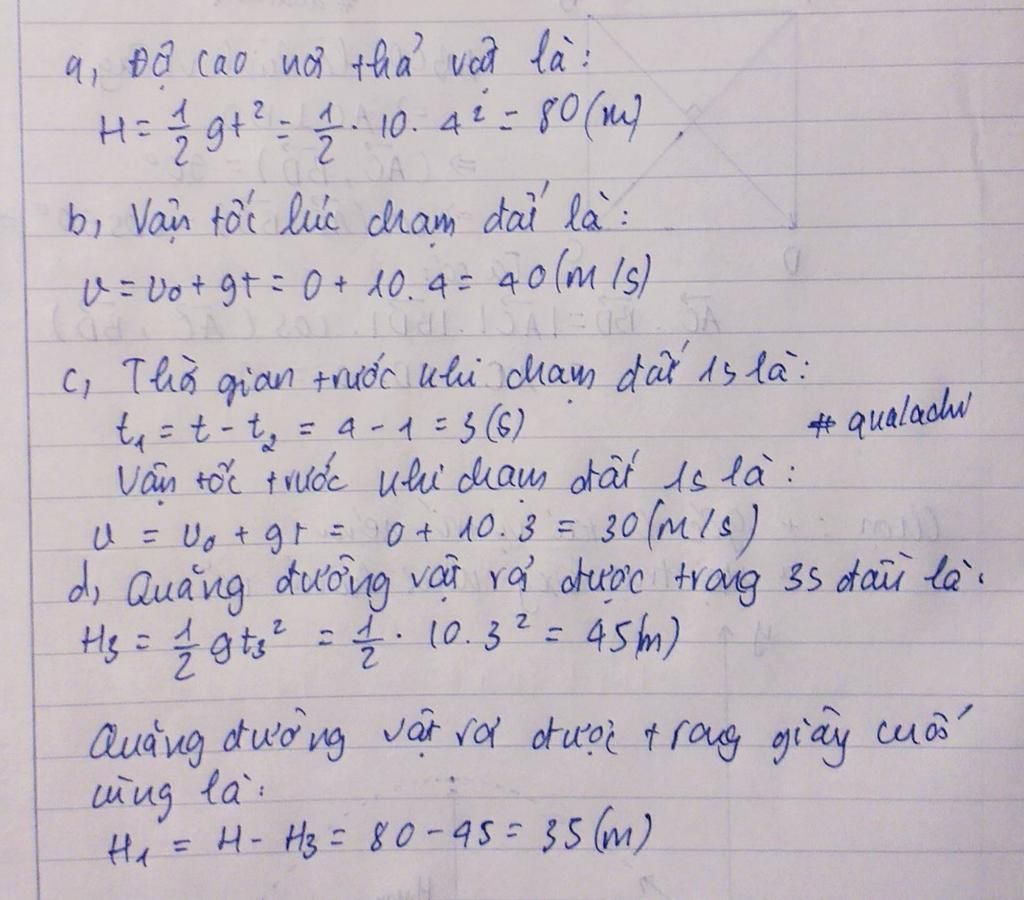 a, Độ cao nơi thả vật là:
H = 1/2 gt² = 1/2 . 10. 4² = 80 (m)
b, Vận tốc lúc chạm đất là:
v = v₀ + gt = 0 + 10. 4 = 40 (m/s)
c, Thời gian trước khi chạm đất 1s là:
t₁ = t - t₂ = 4 - 1 = 3 (s)
# qualachu
Vận tốc trước khi chạm đất 1s là:
v = v₀ + gt = 0 + 10. 3 = 30 (m/s)
d, Quãng đường vật rơi được trong 3s đầu là:
H₃ = 1/2 gt₃² = 1/2 . 10. 3² = 45 m)
Quãng đường vật rơi được trong giây cuối
cùng là:
H₁ = H - H₃ = 80 - 45 = 35 (m)